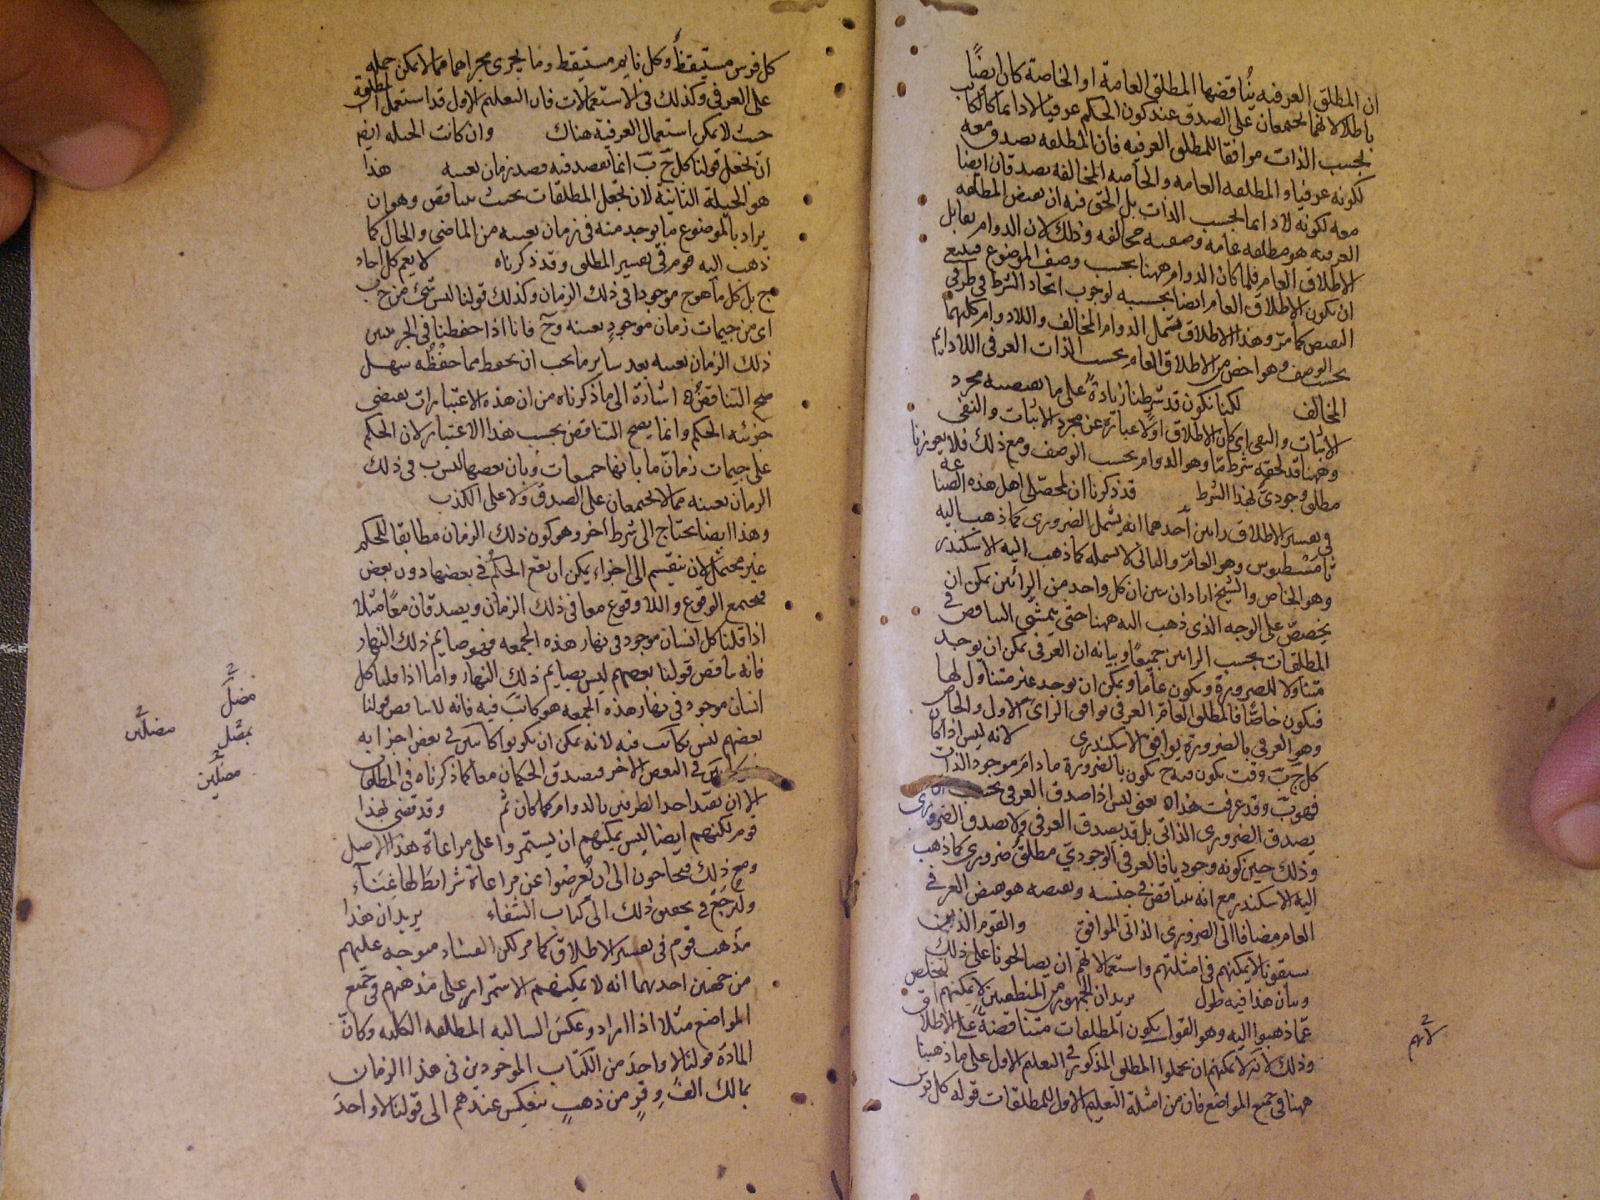 ان المطلق العرفيه يناقضها المطلق العامة او الخاصة كان ايضًا
باطلا لانهما يجتمعان على الصدق عند كون الحكم عرفيا لا دائما كالكاتب
بحسب الذات موافقا للمطلق العرفيه فان المطلقه يصدق معه
لكونه عرفيا و المطلقه العامه والخاصه المخالفه يصدقان ايضا
معه لكونه لا دايما بحسب الذات بل الحق فيه ان نقيض المطلقه
العرفيه هو مطلقه عامه وصفيه مخالفه وذلك لان الدوام يقابل
الاطلاق العام فلما كان الدوام ههنا بحسب وصف الموضوع فينبغي
ان يكون الاطلاق العام ايضا بحسبه لوجوب اتحاد الشرط في طرفي
النقيض كما مرّ وهذا الاطلاق يشمل الدوام المخالف واللادوام كليهما
بحسب الوصف وهو اخص من الاطلاق العام بحسب الذات العرفي اللادايم
المخالف لكنا نكون قد شرطنا زيادة على ما يقتضيه مجرد
الاثبات والنفي اي كان الاطلاق اولا عبارة عن مجرد الاثبات والنفي
وههنا قد لحقه شرط ما وهو الدوام بحسب الوصف ومع ذلك فلا يعوزنا
مطلق وجوديّ بهذا الشرط قد ذكرنا ان لمحصّلي اهل هذه الصناعه
في تفسير الاطلاق رايين احدهما انه يشمل الضروري كما ذهب اليه
ثامسطيوس وهو العام والثاني لا يشمله كما ذهب اليه الاسكندر
وهو الخاص والشيخ اراد ان يبين ان كل واحد من الرائين يمكن ان
يخصص على الوجه الذي ذهب اليه ههنا حتى يتمشى التناقض في
المطلقات بحسب الرايين جميعًا وبيانه ان العرفي يمكن ان يوجد
متناولا للضرورة ويكون عاما ويمكن ان يوجد غير متناول لها
فيكون خاصًّا فالمطلق العام العرفي يوافق الراى الاول والخاص
وهو العرفي بالضرورة يوافق الاسكندرى لانه ليس اذا كان
كل ج ب وقت يكون فيه ج يكون بالضرورة ما دام موجود الذات
فهو ب وقد عرفت هذا يعني ليس اذا صدق العرفي بحسب
يصدق الضروري الذاتي بل قد يصدق العرفي ولا يصدق الضروري
وذلك حين كونه وجوديا فالعرفي الوجودي مطلق ضروري كما ذهب
اليه الاسكندر مع انه يناقض في جنسه ونقيضه هو نقيض العرفي
العام مضافا الى الضروري الذاتي الموافق والقوم الذين
سبقونا لا يمكنهم في امثلتهم واستعمالاتهم ان يصالحونا على ذلك
وبيان هذا فيه طول يريد ان الجمهور من المنطقيين لا يمكنهم التخلص
عمّا ذهبوا اليه وهو القول بكون المطلقات متناقضة على الاطلاق
وذلك لانه لا يمكنهم ان يحملوا المطلق المذكور في التعليم الاول على ما ذهبنا
ههنا في جميع المواضع فان من امثلة التعليم الاول للمطلقات قوله كل فرس
لانهم
كل فرس مستيقظٌ وكل نايم مستيقظ وما يجرى مجراهما مما لا يمكن حمله
على العرفي وكذلك في الاستعمالات فان التعليم الاول قد استعمل المطلقة
حيث لا يمكن استعمال العرفية هناك وان كانت الحيله ايضا
ان نجعل قولنا كل ج ب انما نقصد فيه قصد زمان بعينه هذا
هو الحيلة الثانية لان نجعل المطلقات بحيث يتناقض وهو ان
يراد بالموضوع ما يوجد منه في زمان بعينه من الماضي والحال كما
ذهب اليه قوم في تفسير المطلق وقد ذكرناه لا يعم كل احاد
ج بل كل ما هو ج موجودا في ذلك الزمان وكذلك قولنا ليس شئ من ج ب
اى من جيمات زمان موجود بعينه وح فانا اذا حفظنا في الجزئيتين
ذلك الزمان بعينه بعد ساير ما يجب ان يحفظ مما حفظه سهل
صح التناقض اشارة الى ما ذكرناه من ان هذه الاعتبارات يقتضي
جزئيه الحكم وانما يصح التناقض بحسب هذا الاعتبار لان الحكم
على جيمات زمان ما بانها جميعا ب وبان بعضها ليس ب في ذلك
الزمان بعينه مما لا يجتمعان على الصدق ولا على الكذب
وهذا ايضا يحتاج الى شرط آخر وهو كون ذلك الزمان مطابقا للحكم
غير محتمل لان ينقسم الى اجزاء يمكن ان يقع الحكم في بعضها دون بعض
فيجتمع الوقوع واللاوقوع معا في ذلك الزمان ويصدقان معًا مثلا
اذا قلنا كل انسان موجود في نهار هذه الجمعه فهو صايم ذلك النهار
فانه يناقض قولنا بعضهم ليس بصايم ذلك النهار واما اذا قلنا كل
انسان موجود في نهار هذه الجمعه هو كاتب فيه فانه لا يناقض قولنا
بعضهم ليس بكاتب فيه لانه يمكن ان يكونوا كاتبين في بعض اجزايه
كاتبين في البعض الآخر فيصدق الحكمان معا كما ذكرناه في المطلقات
الا ان نقيد احد الطرفين بالدوام كما كان ثم وقد قضى بهذا
قوم لكنهم ايضا ليس يمكنهم ان يستمروا على مراعاة هذا الاصل
ومع ذلك فيحتاجون الى ان يُعرضوا عن مراعاة شرائط لها غناء
ولترجع في تحقيق ذلك الى كتاب الشفاء يريد ان هذا
مذهب قوم في تفسير الاطلاق كما مر لكن الفساد متوجه عليهم
من جهتين احديهما انه لا يمكنهم الاستمرار على مذهبهم في جميع
المواضع مثلا اذا ارادوا عكس السالبه المطلقه الكليه وكانت
المادة قولنا لا واحد من الكتاب الموجودين في هذا الزمان
بمالك الف وقرٍ من ذهبٍ ينعكس عندهم الى قولنا لا واحد